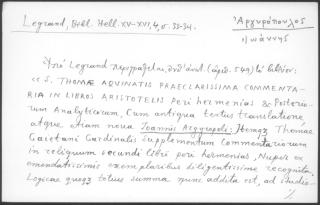 Legrand, Bibl. Hell. XV-XVI, 4, σ. 33-34.
Ἀργυρόπουλος
Ἰωάννης
Ὑπὸ Legrand περιγράφεται, ὑπ' ἀριθ. 549) τὸ βιβλίον:
«S. THOMAE AQUINATIS PRAECLARISSIMA COMMENTA-
RIA IN LIBROS ARISTOTELIS Peri hermenias & Posterio-
rum Analyticorum, Cum antiqua textus translatione,
atque etiam noua Joannis Argyropoli: Hemq3 Thomae
Caietani Cardinalis supplementum commentariorum
in reliquum secundi libri peri hermenias, Nuper ex
emendatissimis exemplaribus diligentissime recognita.
Logicae quoq3 totius summa nunc addita est, ad studio-